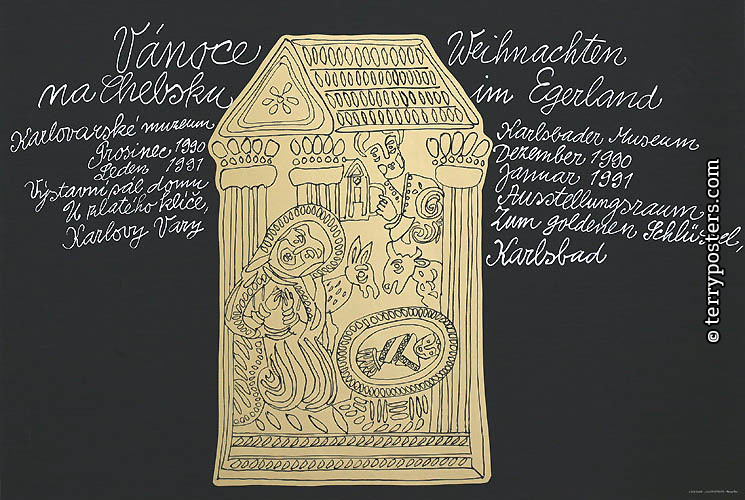 Vánoce
na Chebsku
Karlovarské muzeum
Prosinec 1990
Leden 1991
Výstavní sál domu
U zlatého klíče,
Karlovy Vary
Weihnachten
im Egerland
Karlsbader Museum
Dezember 1990
Januar 1991
Ausstellungsraum
Zum goldenen Schlüssel,
Karlsbad
© terryposters.com